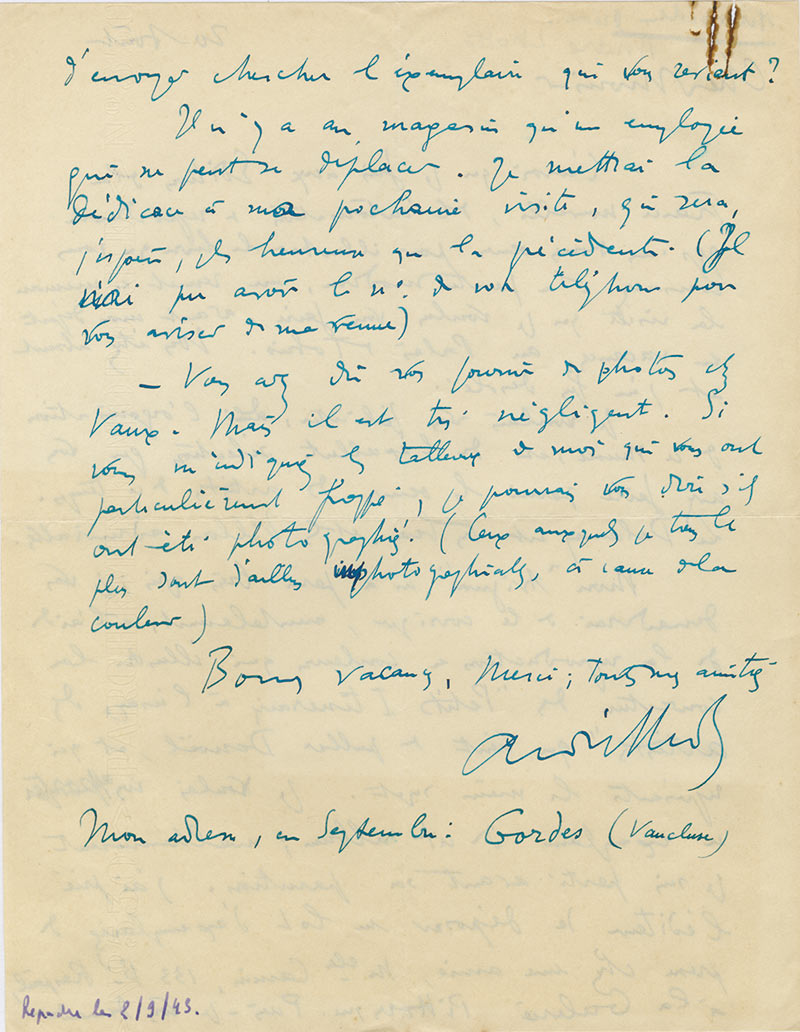 d'envoyer chercher l'exemplaire qui vous revient ?
Il n'y a au magasin qu'un employé
qui ne peut se déplacer. Je mettrai la
dédicace à ma prochaine visite, qui sera,
j'espère, plus heureuse que la précédente. (Je
n'ai pu avoir le n° de votre téléphone pour
vous aviser de ma venue)
– Vous avez dû vous fournir de photos chez
Vaux. Mais il est très négligent. Si
vous m'indiquez les tableaux de moi qui vous ont
particulièrement frappé, je pourrais vous dire s'ils
ont été photographiés. (Ceux auxquels je tiens le
plus sont d'ailleurs inphotographiables, à cause de la
couleur)
Bonnes vacances, Merci ; toutes mes amitiés
Mon adresse, en Septembre : Gordes (Vaucluse)
le 2/9/43.